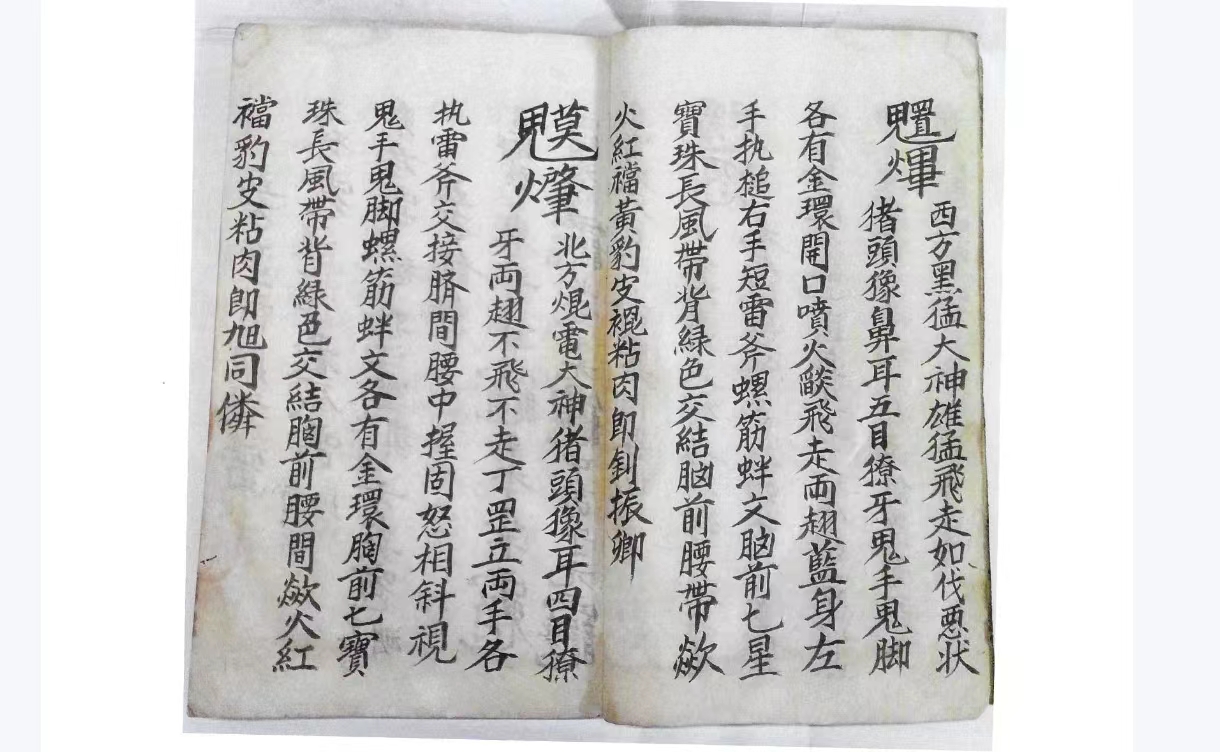 西方黑猛大神雄猛飛走如伐惡状
猪頭㺄鼻耳五目獠牙鬼手鬼脚
各有金環開口噴火燄飛走両翅藍身左
手执槌右手短雷斧螺筋蚌文胸前七星
寶珠長風帶背綠色交結胸前腰帶歘
火紅襠黃豹皮裩粘肉即釗振卿
北方焜電大神猪頭㺄耳四目獠
牙両翅不飛不走丁罡立両手各
执雷斧交接臍間腰中握固怒相斜視
鬼手鬼脚螺筋蚌文各有金環胸前七寶
珠長風帶背綠色交結胸前腰間歘火紅
襠豹皮粘肉即旭同僯